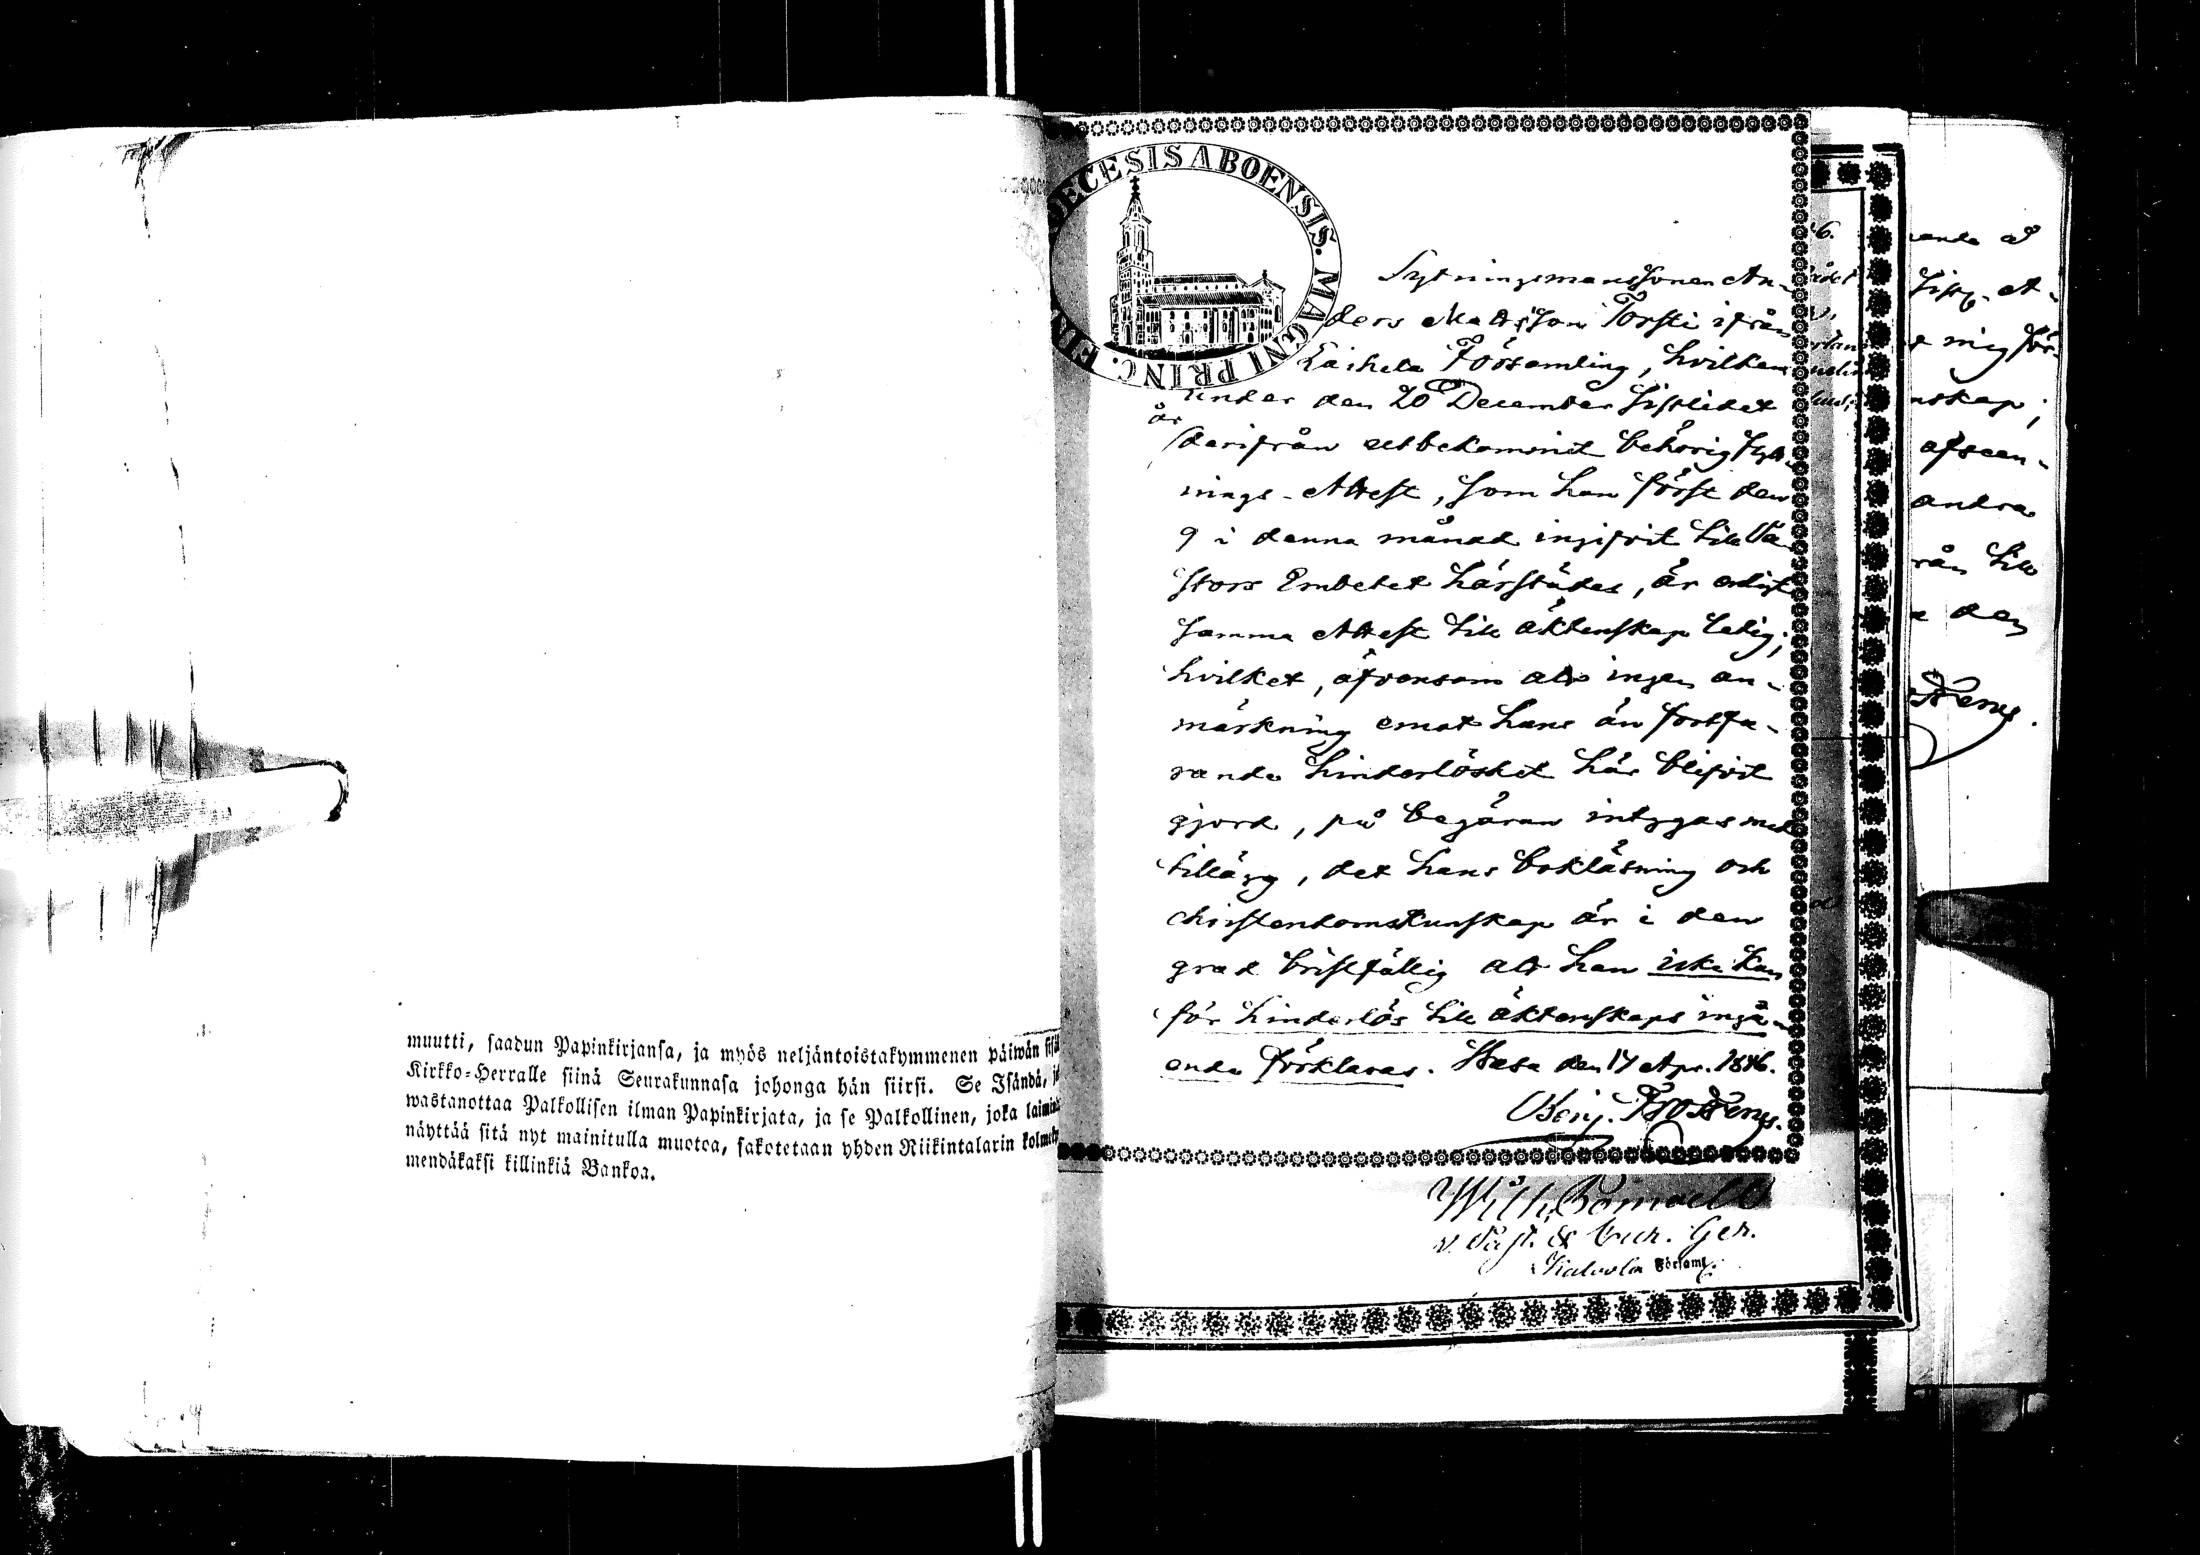 muutti, saadun Papinkirjansa, ja myös neljäntoistakymmenen päiwän
Kirkko-Herralle siinä Seurakunnasa johonga hän siirsi. Se Isändä,
wastanottaa Palkollisen ilman Papinkirjata, ja se Palkollinen, joka
näyttää sitä nyt mainitulla muotoa, sakotetaan yhden Riikintalarin
mendäkaksi killinkiä Bankoa.
DIOECESIS ABOENSIS. MAGNI PRINC.
Sytningsmanssonen An-
ders Mattsson Torsti ifrån
Församling, hvilken
under den 20 December sistledet
år
derifrån utbekommit behörig
nings-Attest, som han först den
9 i denna månad ingifvit till Pa-
stors Embetet härstädes, är enligt
samma Attest till äktenskap ledig;
hvilket, äfvensom att ingen an-
märkning emot hans än fortfa-
rande hinderlöshet här blifvit
gjord, på begäran intygas med
tillägg, det hans bokläsning och
christendomskunskap är i den
grad bristfällig att han icke kan
för hinderlös till äktenskaps ingå-
ende förklaras. den 17 Apr. 1846.
Benj.
Wilh.
v. Past.
Kalvola Församl.
6.
ande
mig för-
nskap;
afseen-
andra
rån till
den